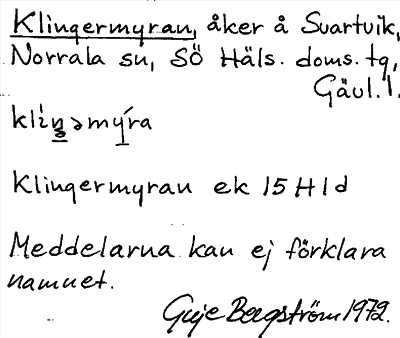 Klingermyran, åker å Svartvik,
Norrala sn, SÖ Häls. doms. tg,
Gävl. l.
klíŋəmýra
Klingermyran ek 15H1d
Meddelarna kan ej förklara
namnet.
Guje Bergström 1972.